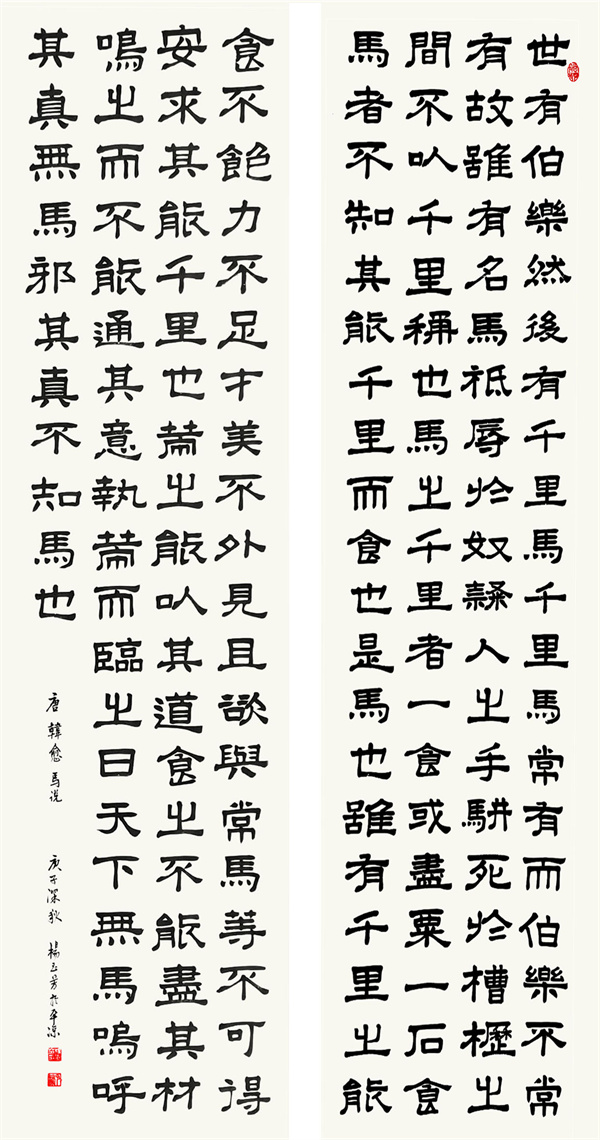 世有伯樂然後有千里馬千里馬常有而伯樂不常
有故雖有名馬祗辱於奴隸人之手駢死於槽櫪之
間不以千里稱也馬之千里者一食或盡粟一石食
馬者不知其能千里而食也是馬也雖有千里之能
食不飽力不足才美不外見且欲與常馬等不可得
安求其能千里也策之能以其道食之不能盡其材
鳴之而不能通其意執策而臨之曰天下無馬嗚呼
其真無馬邪其真不知馬也
唐韓愈馬説 庚子深秋 楊芳於平涼